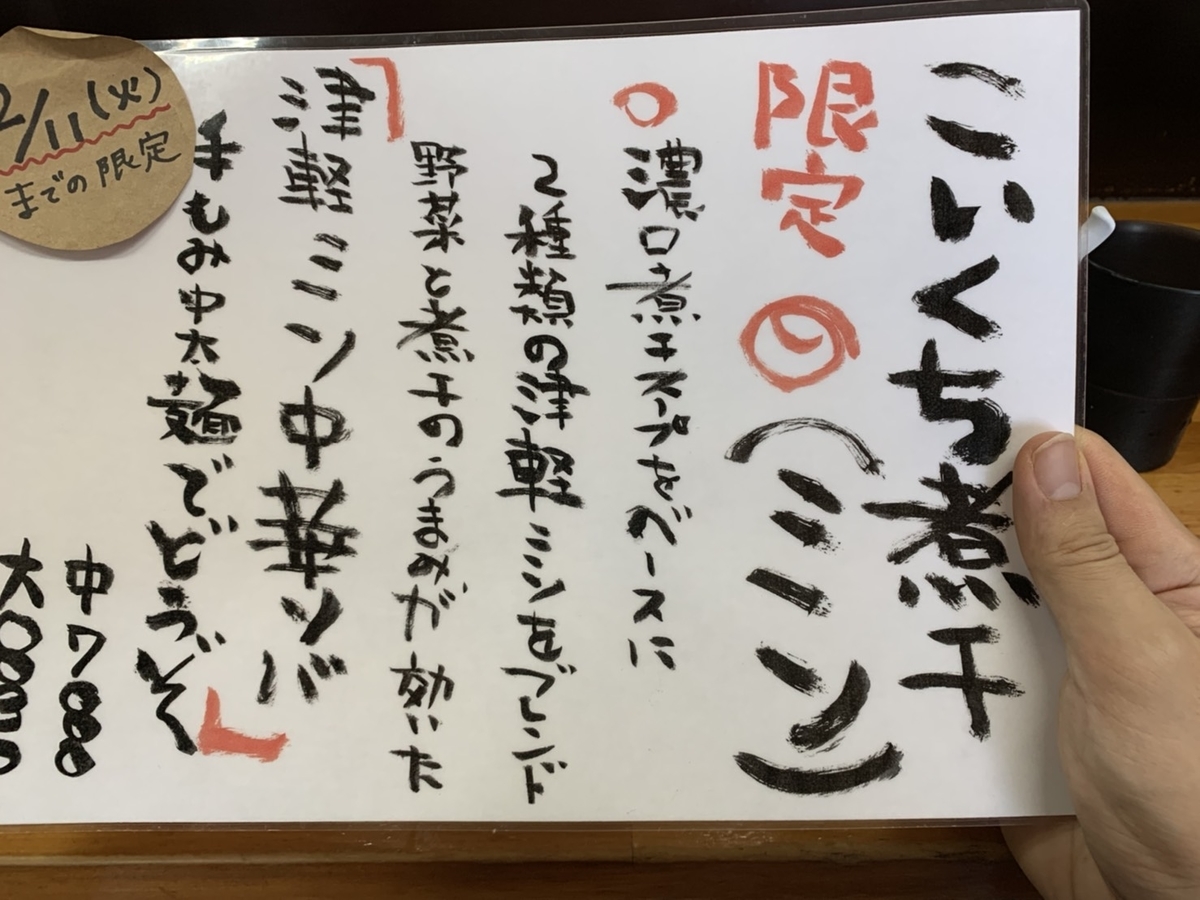 こいくち煮干
限定 (ミソ)
○濃口煮干スープをベースに
2種類の津軽ミソをブレンド
野菜と煮干のうまみが効いた
「津軽ミソ中華ソバ
手もみ中太麺でどうぞ」
中788
大
2/11(火)
までの限定